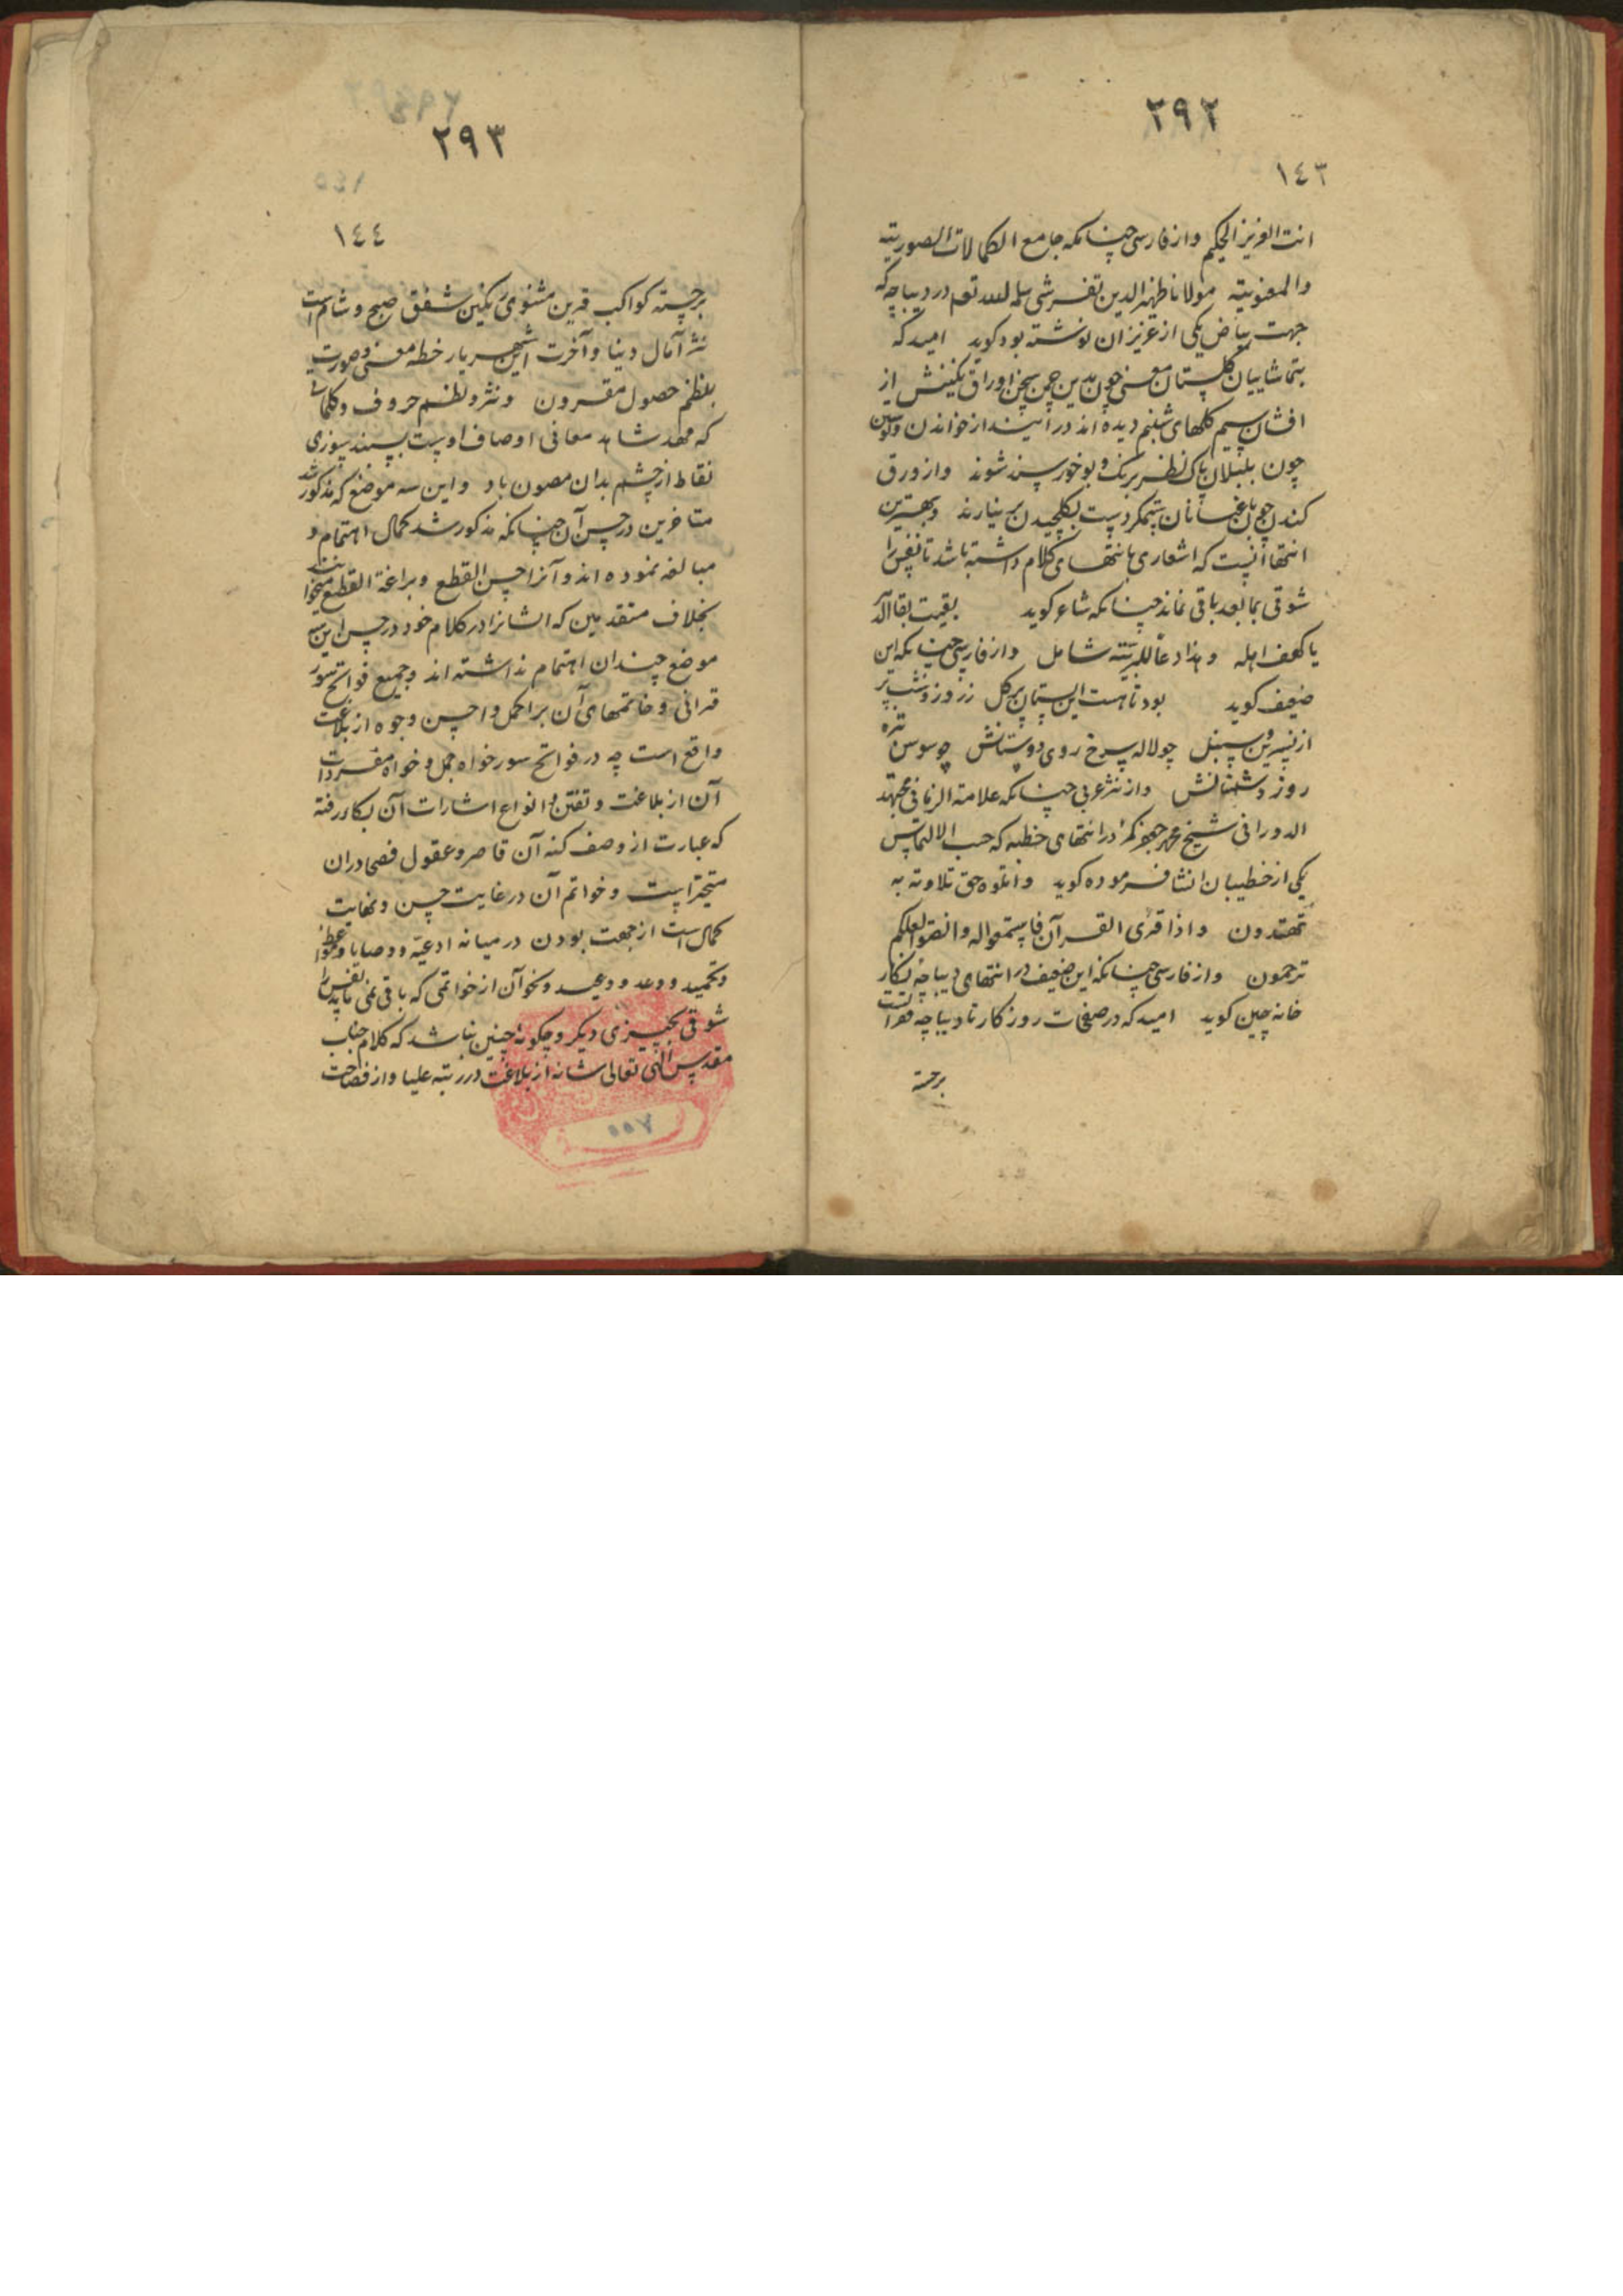 ۲۹۲
١٤٣
انت العزیز الحکیم واز فارسی چنانکه جامع الکمالات الصوریته
والمعنویته مولانا ظهیر الدین تفرشی سلمه الله تعه در دیباچه که
جهت بیاض یکی از عزیزان نوشته بود کوید امید که
بتماشاییان کلستان معنی چون بدین چمن سخن اوراق نکینش از
افشان سیم کلهای شبنم دیده اند درایند از خواندن
چون بلبلان پاک نظر برنک و بو خورسند شوند واز ورق
کندن چون باغبانان ستمکر دست بکلچیدن بر نیارند وبهترین
انتها آنست که اشعاری بانتهای کلام داشته باشد تا نفس را
شوقی بما بعد باقی نماند چنانکه شاعر کوید بقیت بقا الد
یا کهف اهله وهذا دعا للبریته شامل واز فارسی چنانکه این
ضعیف کوید بود تا هست این بستان پر کل ز روز و شب پر
از نسرین وسنبل چو لاله سرخ روی دوستانش چو سوسن تیره
روز دشمنانش واز نثر عربی چنانکه علامة الزمانی مجتهد
الدورانی شیخ محمد جعفر کمره در انتهای خطبه که حسب الالتماس
یکی از خطیبان انشا فرموده کوید واتلوه حق تلاوته به
تهتدون واذا قرئ القرآن فاستمعوا له وانصتوا لعلکم
ترحمون واز فارسی چنانکه این ضعیف در انتهای دیباچه نکار
خانه چین کوید امید که در صفحات روزکار تا دیباچه
برجسته
۲۹۳
١٤٤
برجسته کواکب قرین مثنوی رنکین شفق صبح و شام است
نثر آمال دنیا وآخرت این شهریار خطه معنی وصورت
بنظم حصول مقرون ونثر ونظم حروف وکلماتی
که مهد شاهد معانی اوصاف اوست بسپند سوزی
نقاط از چشم بدان مصون باد واین سه موضع که مذکور شد
متاخرین در حسن آن چنانکه مذکور شد کمال اهتمام و
مبالغه نموده اند وآنرا حسن القطع وبراعة القطع میخوانند
بخلاف متقدمین که ایشانرا در کلام خود در حسن این سه
موضع چندان اهتمام نداشته اند وجمیع فواتح سور
قرانی وخاتمهای آن بر اکمل واحسن وجوه از بلاغت
واقع است چه در فواتح سور خواه جمل وخواه مفردات
آن از بلاغت وتفنن وانواع اشارات آن بکار رفته
که عبارت از وصف کنه آن قاصر وعقول فصحا دران
متحیر است وخواتم آن در غایت حسن ونهایت
کمال است از جهت بودن در میانه ادعیه ووصایا ومواعظ
وتحمید ووعد ووعید ونحو آن از خواتمی که باقی نمی ماند نفس را
شوقی بچیزی دیکر وچکونه چنین نباشد که کلام جناب
مقدس الهی تعالی شانه از بلاغت در رتبه علیا واز فصاحت
٧٥٥